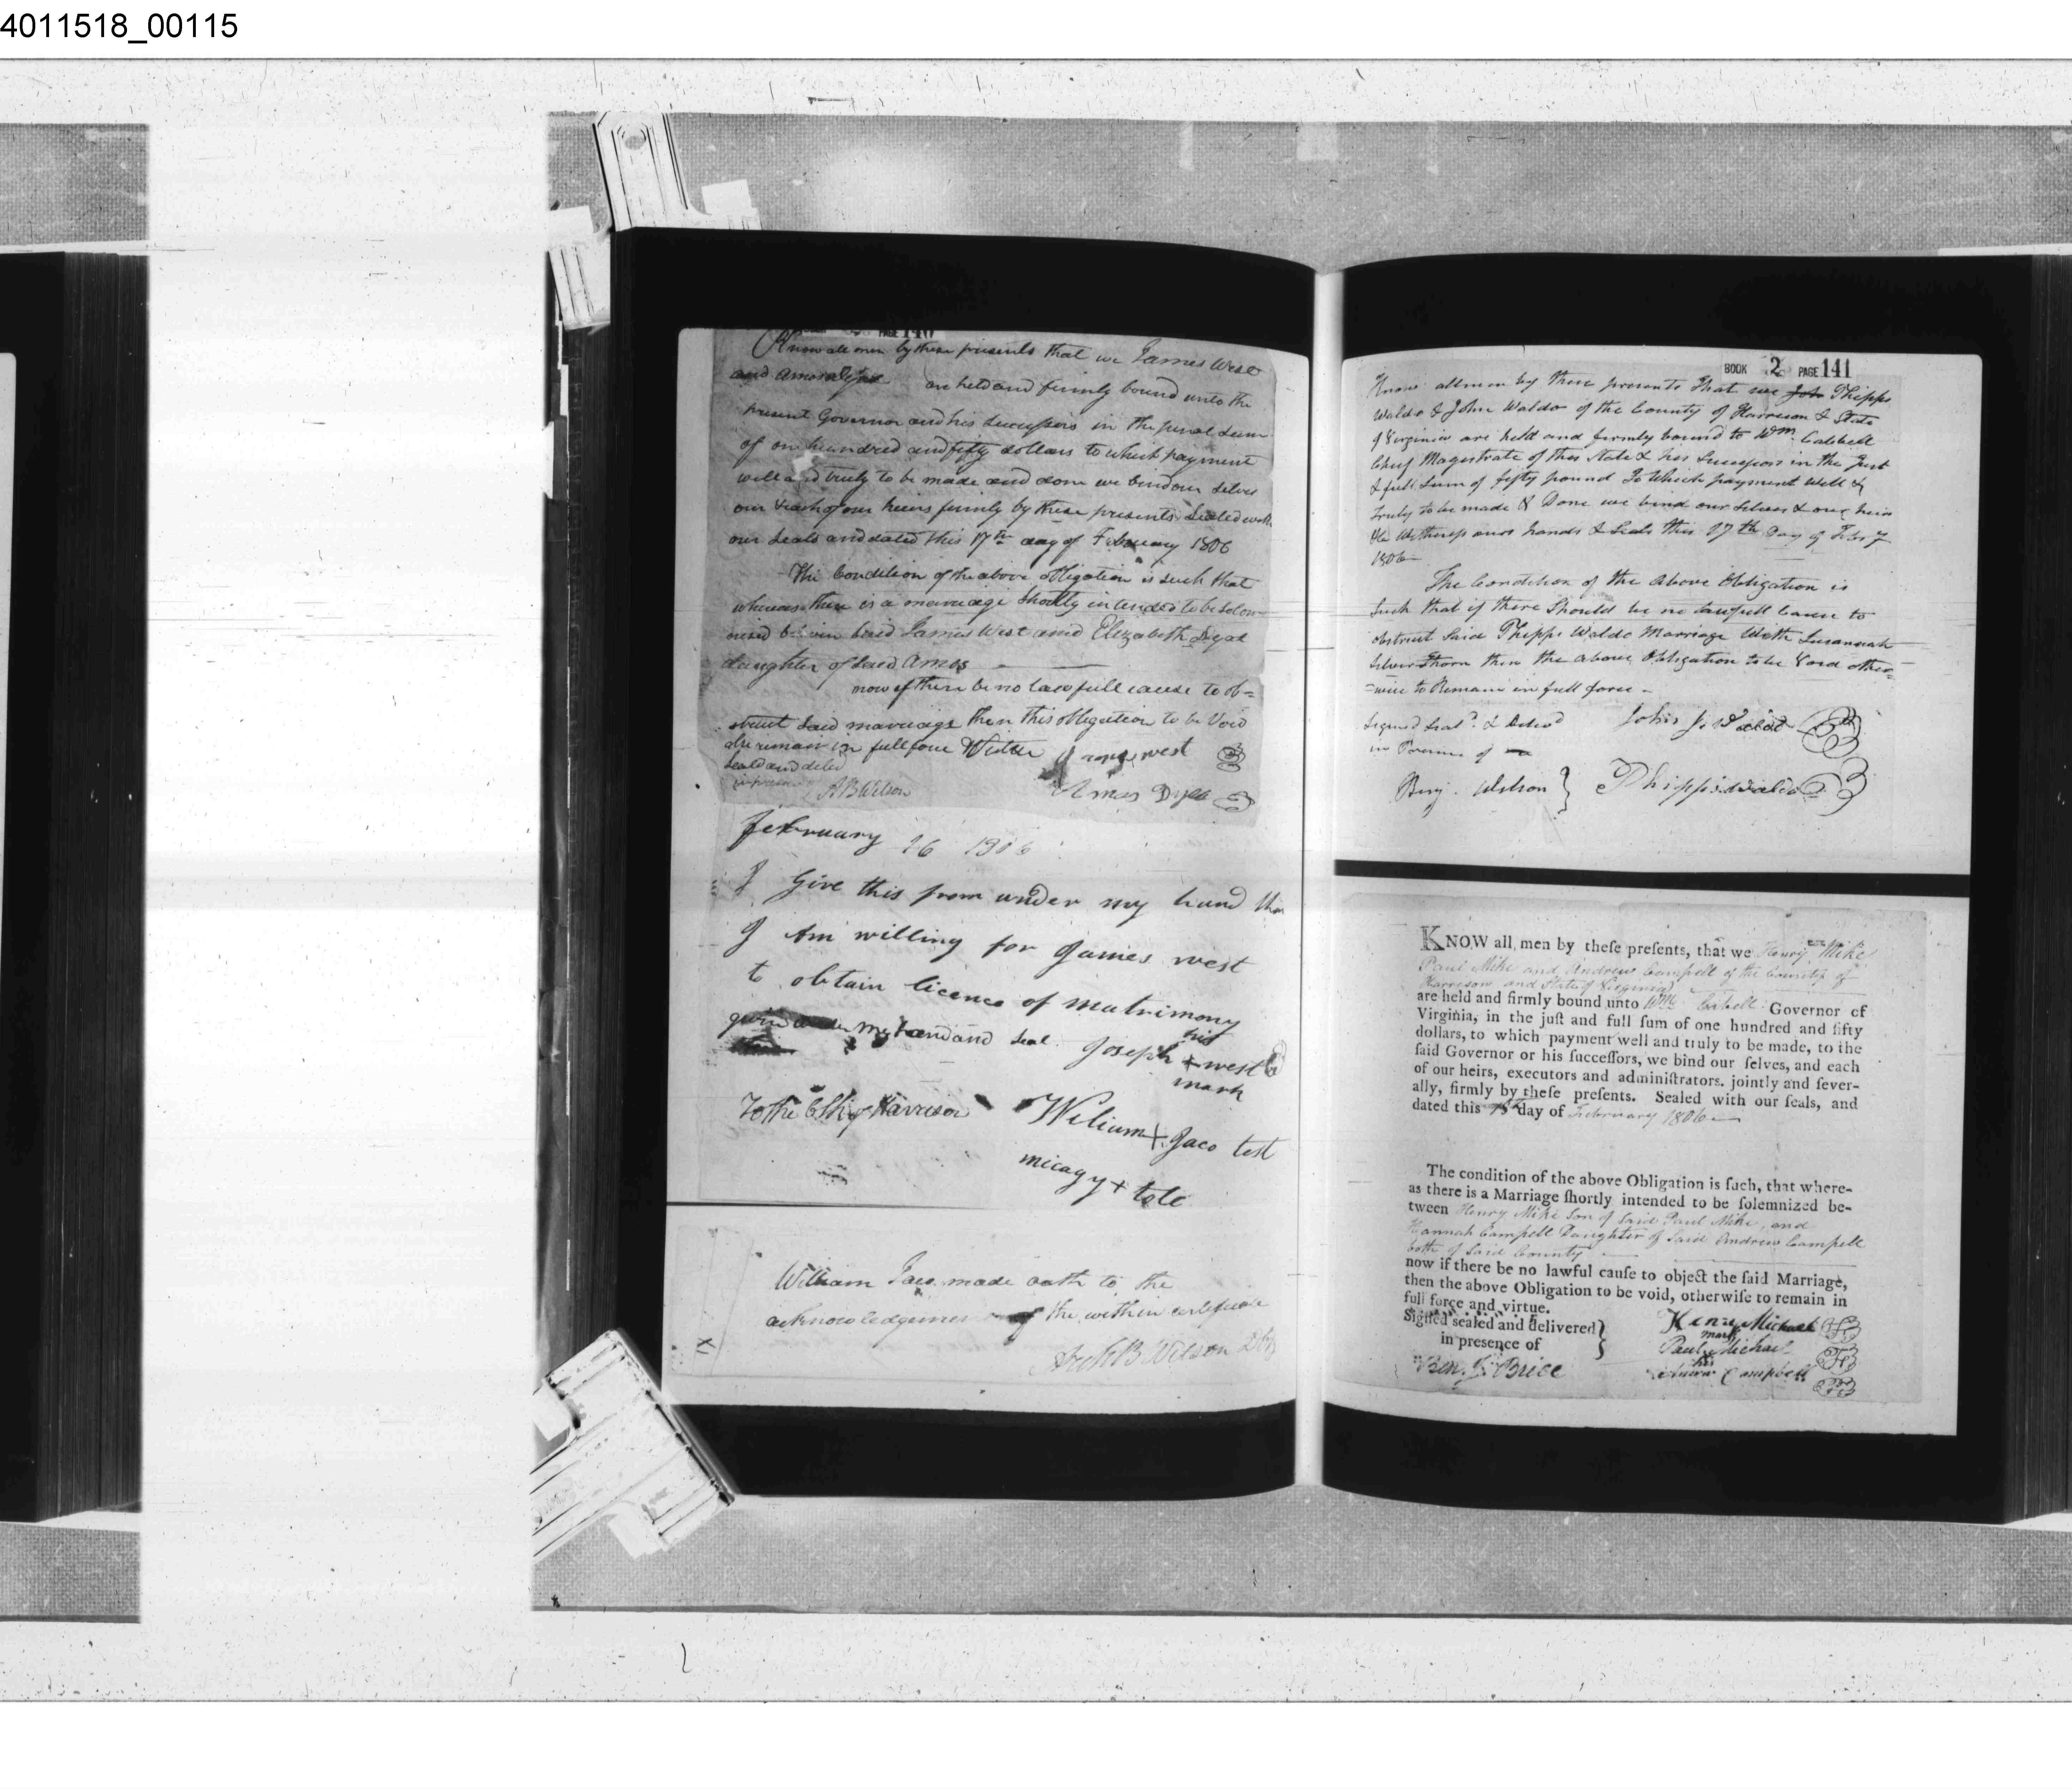 4011518_00115
Know all men by these presents that we James West
and Amos are held and firmly bound unto the
present Governor and his successors in the penal sum
of one hundred and fifty dollars to which payment
well and truly to be made and done we bind our selves
our & each of our heirs firmly by these presents Sealed with
our seals and dated this 17th day of February 1806
The Condition of the above obligation is such that
whereas there is a marriage Shortly intended to be solem-
nised said James West and Elizabeth
daughter of said Amos
now if there be no lawfull cause to ob=
struct said marriage then this obligation to be Void
remain in full force James west
Seald and deld
A B Wilson Amos Dyee
february 16 1806
I Give this from under my hand
I Am willing for James west
to obtain licence of matrimony
given under my hand and seal Joseph his + west
mark
To the Clk of Harrison Wilium + Jaco test
micagy + tole
William Jaco made oath to the
acknowledgment of the within certificate
Arch B Wilson
BOOK 2 PAGE 141
Know all men by these presents that we Joh Phipps
Waldo & John Waldo of the County of Harrison & State
of Virginia are held and firmly bound to Wm. Cabbell
Chief Magistrate of this State & his Successors in the Just
& full Sum of fifty pound To Which payment Well &
truly to be made & Done we bind our Selves & our heirs
&c Witness our hands & Seals this 17th Day of Feby
1806
The Condition of the above Obligation is
Such that if there Should be no lawfull Cause to
obstruct Said Phipps Waldo Marriage With Susannah
Silverthorn then the above Obligation to be Void other=
=wise to Remain in full force -
Signed Seal.d & Delivd John J. Waldo
in Presence of
Benj. Wilson } Phipps Waldo
KNOW all men by theſe preſents, that we Henry Mike
Paul Mike and Andrew Campell of the County of
Harrison and State of Virginia
are held and firmly bound unto Wm Cabell Governor of
Virginia, in the juſt and full ſum of one hundred and fifty
dollars, to which payment well and truly to be made, to the
ſaid Governor or his ſucceſſors, we bind our ſelves, and each
of our heirs, executors and adminiſtrators. jointly and ſever-
ally, firmly by theſe preſents. Sealed with our ſeals, and
dated this day of February 1806
The condition of the above Obligation is ſuch, that where-
as there is a Marriage ſhortly intended to be ſolemnized be-
tween Henry Mike Son of Said Paul Mike, and
Hannah Campell Daughter of Said Andrew Campell
both of Said County
now if there be no lawful cauſe to object the ſaid Marriage,
then the above Obligation to be void, otherwiſe to remain in
full force and virtue.
Signed sealed and delivered } Henry Michael
in presence of mark
Paul Michael
Ben. Brice his
Andrew Campbell